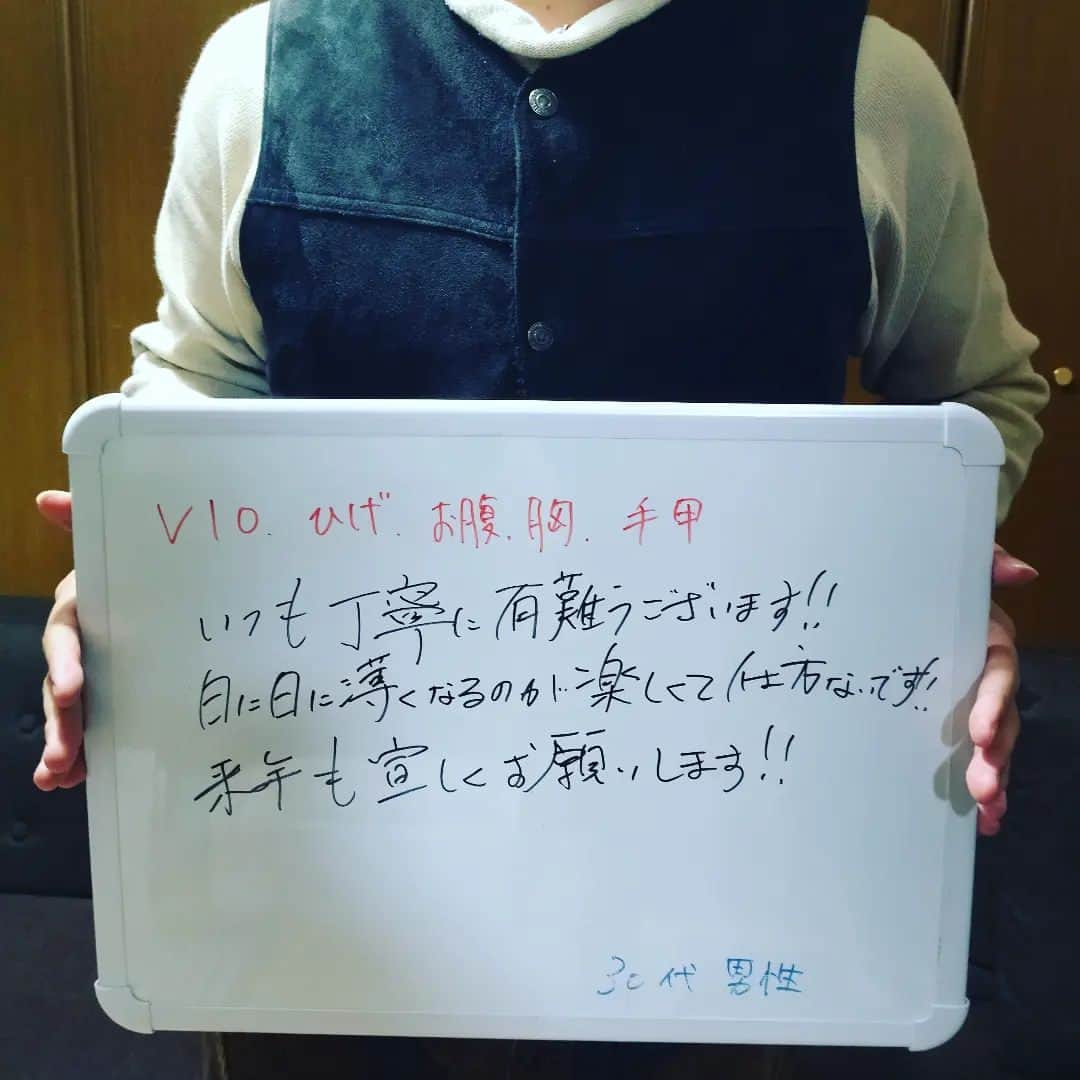 VIO. ひげ. お腹. 胸. 手甲
いつも丁寧に有難うございます!!
日に日に薄くなるのが楽しくて仕方ないです!!
来年も宜しくお願いします!!
30代 男性